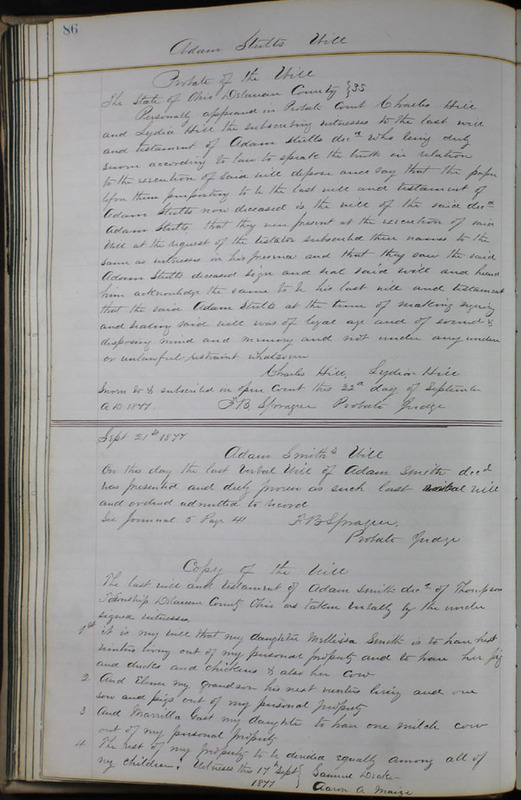 86
Adam Stults Will
Probate of the Will
The State of Ohio Delaware County } SS
Personally appeared in Probate Court Charles Hill
and Lydia Hill the subscribing witnesses to the last will
and testament of Adam Stults decd who being duly
sworn according to law to speak the truth in relation
to the execution of said will depose and say that the paper
before them purporting to be the last will and testament of
Adam Stults now deceased is the will of the said decd
Adam Stults, that they were present at the execution of said
Will at the request of the testator subscribed their names to the
same as witnesses in his presence and that they saw the said
Adam Stults deceased sign and seal said will and heard
him acknowledge the same to be his last will and testament
that the said Adam Stults at the time of making signing
and sealing said will was of legal age and of sound &
disposing mind and memory and not under any undue
or unlawful restraint whatsoever
Charles Hill, Lydia Hill
Sworn to & subscribed in open Court this 22d day of September
A.D. 1877. F.B. Sprague Probate Judge
Sept 21st 1877
Adam Smith's Will
On this day the last Verbal Will of Adam Smith decd
was presented and duly proven as such last verbal will
and ordered admitted to record
See Journal 5 Page 41 F B Sprague,
Probate Judge
Copy of the Will
The last will and testament of Adam Smith decd of Thompson
Township Delaware County Ohio as taken verbally by the under
signed witnesses
1st It is my will that my daughter Mellissa Smith is to have her
winters living out of my personal property and to have her pig
and ducks and chickens & also her cow
2 And Elmer my grandson his next winters living and one
sow and pigs out of my personal property
3 And Marrilla Gast my daughter to have one milch cow
out of my personal property
4 The rest of my property to be divided equally among all of
my children. Witness this 17th Sept } Samuel Drake
1877 } Aaron A Maize